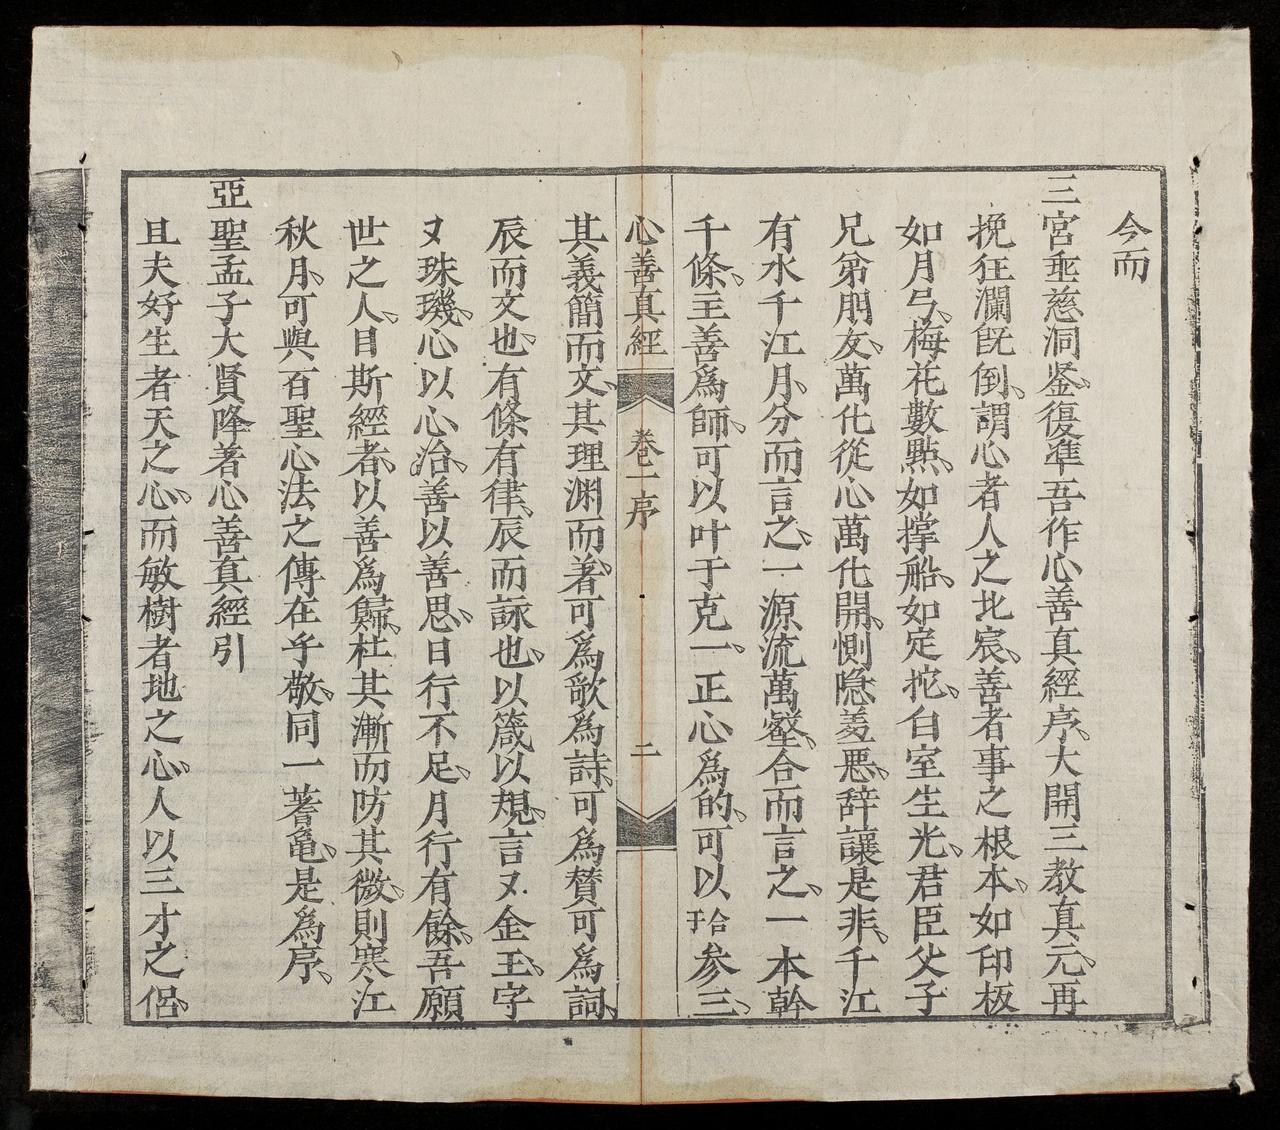 今而
三宮垂慈洞鉴、復準吾作心善真經序、大開三教真元、再
挽狂瀾旣倒、謂心者人之北宸、善者事之根本、如印板
如月弓、梅花數點、如撑船、如定柁、白室生光、君臣父子
兄弟朋友、萬化從心萬化開、惻隐羞惡、辞讓是非、千江
有水千江月、分而言之、一源流萬壑、合而言之、一本幹
千條、主善爲師、可以叶于克一、正心爲的、可以合于参三、
心善真經 卷一序 二
其義簡而文、其理渊而著、可爲歌爲詩、可爲賛可爲詞、
辰而文也、有條有律、辰而詠也、以箴以規、言又金玉、字
又珠璣、心以心治、善以善思、日行不足、月行有餘、吾願
世之人、目斯經者、以善爲歸、杜其漸而防其微、則寒江
秋月、可與百聖心法之傳在乎敬、同一蓍龜、是爲序、
亞聖孟子大賢降著心善真經引
且夫好生者天之心、而敏樹者地之心、人以三才之侣、